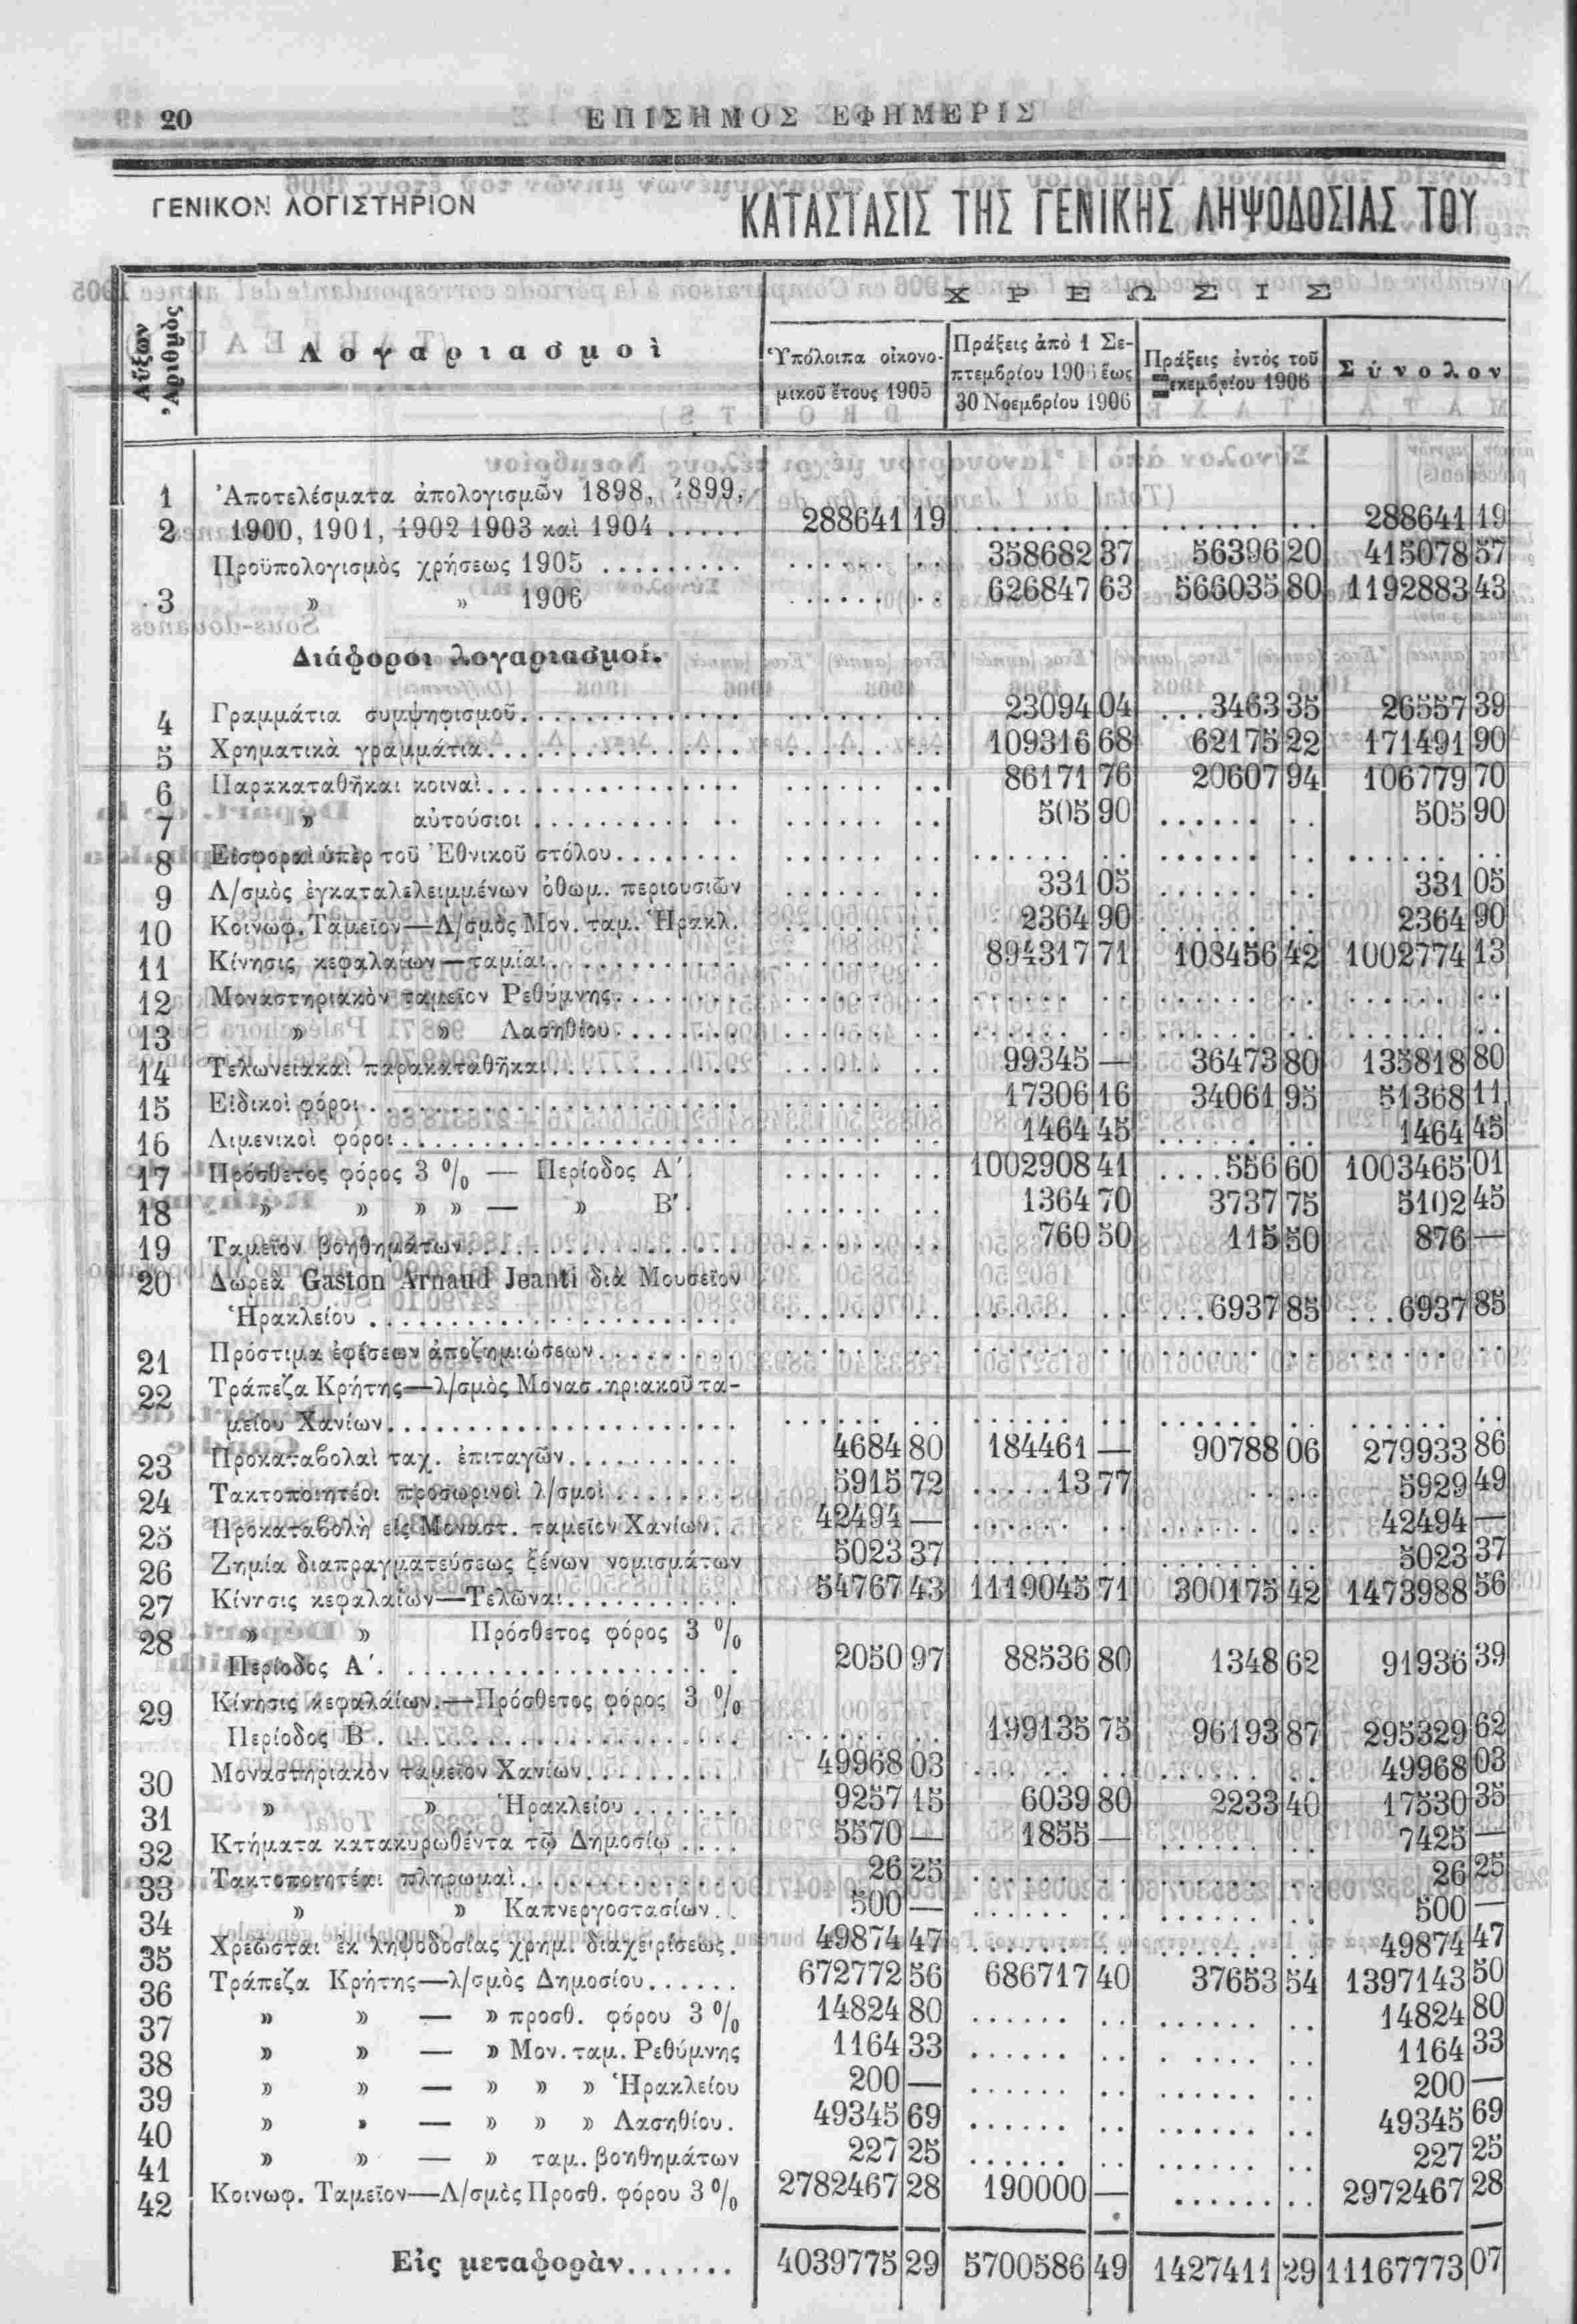 20 ΕΠΙΣΗΜΟΣ ΕΦΗΜΕΡΙΣ
ΓΕΝΙΚΟΝ ΛΟΓΙΣΤΗΡΙΟΝ ΚΑΤΑΣΤΑΣΙΣ ΤΗΣ ΓΕΝΙΚΗΣ ΛΗΨΟΔΟΣΙΑΣ ΤΟΥ
Αὔξων Ἀριθμὸς
Λογαριασμοὶ
ΧΡΕΩΣΙΣ
Ὑπόλοιπα οἰκονομικοῦ ἔτους 1905
Πράξεις ἀπὸ 1 Σεπτεμβρίου 1906 ἕως 30 Νοεμβρίου 1906
Πράξεις ἐντὸς τοῦ Δεκεμβρίου 1906
Σύνολον
1 Ἀποτελέσματα ἀπολογισμῶν 1898, 1899,
2 1900, 1901, 1902 1903 καὶ 1904 ..... 288641 19 ........ ........ 288641 19
Προϋπολογισμὸς χρήσεως 1905 ......... ........ 358682 37 56396 20 415078 57
3 » » 1906 ........ 626847 63 566035 80 1192883 43
Διάφοροι λογαριασμοί.
4 Γραμμάτια συμψηφισμοῦ............. ........ 23094 04 ...3463 35 26557 39
5 Χρηματικὰ γραμμάτια............... ........ 109316 68 62175 22 171491 90
6 Παρακαταθῆκαι κοιναὶ................ ........ 86171 76 20607 94 106779 70
7 » αὐτούσιοι ............ ........ 505 90 ........ 505 90
8 Εἰσφοραὶ ὑπὲρ τοῦ Ἐθνικοῦ στόλου........ ........ ........ ........ ........
9 Λ/σμὸς ἐγκαταλελειμμένων ὀθωμ. περιουσιῶν ........ 331 05 ........ 331 05
10 Κοινωφ. Ταμεῖον—Λ/σμὸς Μον. ταμ. Ἡρακλ. ........ 2364 90 ........ 2364 90
11 Κίνησις κεφαλαίων—ταμίαι............ ........ 894317 71 108456 42 1002774 13
12 Μοναστηριακὸν ταμεῖον Ρεθύμνης........ ........ ........ ........ ........
13 » » Λασηθίου....... ........ ........ ........ ........
14 Τελωνειακαὶ παρακαταθῆκαι........... ........ 99345 — 36473 80 135818 80
15 Εἰδικοὶ φόροι..................... ........ 17306 16 34061 95 51368 11
16 Λιμενικοὶ φόροι................... ........ 1464 45 ........ 1464 45
17 Πρόσθετος φόρος 3 % — Περίοδος Α΄. ........ 1002908 41 ....556 60 1003465 01
18 » » » » — » Β΄. ........ 1364 70 3737 75 5102 45
19 Ταμεῖον βοηθημάτων................ ........ 760 50 115 50 876 —
20 Δωρεὰ Gaston Arnaud Jeanti διὰ Μουσεῖον
Ἡρακλείου ...................... ........ ........ ...6937 85 ...6937 85
21 Πρόστιμα ἐφέσεων ἀποζημιώσεων......... ........ ........ ........ ........
22 Τράπεζα Κρήτης—λ/σμὸς Μονασ.ηριακοῦ τα-
μείου Χανίων..................... ........ ........ ........ ........
23 Προκαταβολαὶ ταχ. ἐπιταγῶν........... 4684 80 184461 — 90788 06 279933 86
24 Τακτοποιητέοι προσωρινοὶ λ/σμοὶ ........ 5915 72 .....13 77 .... 5929 49
25 Προκαταβολὴ εἰς Μοναστ. ταμεῖον Χανίων.. 42494 — ........ ........ 42494 —
26 Ζημία διαπραγματεύσεως ξένων νομισμάτων 5023 37 ........ ........ 5023 37
27 Κίνησις κεφαλαίων—Τελῶναι........... 54767 43 1119045 71 300175 42 1473988 56
28 » » Πρόσθετος φόρος 3 %
Περίοδος Α΄. .................. 2050 97 88536 80 1348 62 91936 39
29 Κίνησις κεφαλαίων.—Πρόσθετος φόρος 3 %
Περίοδος Β .................... ........ 199135 75 96193 87 295329 62
30 Μοναστηριακὸν ταμεῖον Χανίων......... 49968 03 ........ ........ 49968 03
31 » » Ἡρακλείου ....... 9257 15 6039 80 2233 40 17530 35
32 Κτήματα κατακυρωθέντα τῷ Δημοσίῳ .... 5570 — 1855 — ........ 7425 —
33 Τακτοποιητέαι πληρωμαὶ............. 26 25 ........ ........ 26 25
34 » » Καπνεργοστασίων.. 500 — ........ ........ 500 —
35 Χρεῶσται ἐκ ληψοδοσίας χρημ. διαχειρίσεως. 49874 47 ........ ........ 49874 47
36 Τράπεζα Κρήτης—λ/σμὸς Δημοσίου...... 672772 56 686717 40 37653 54 1397143 50
37 » » — » προσθ. φόρου 3 % 14824 80 ........ ........ 14824 80
38 » » — » Μον. ταμ. Ρεθύμνης 1164 33 ........ ........ 1164 33
39 » » — » » » Ἡρακλείου 200 — ........ ........ 200 —
40 » » — » » » Λασηθίου. 49345 69 ........ ........ 49345 69
41 » » — » ταμ. βοηθημάτων 227 25 ........ ........ 227 25
42 Κοινωφ. Ταμεῖον—Λ/σμὸς Προσθ. φόρου 3 % 2782467 28 190000 — ........ 2972467 28
Εἰς μεταφοράν....... 4039775 29 5700586 49 1427411 29 11167773 07